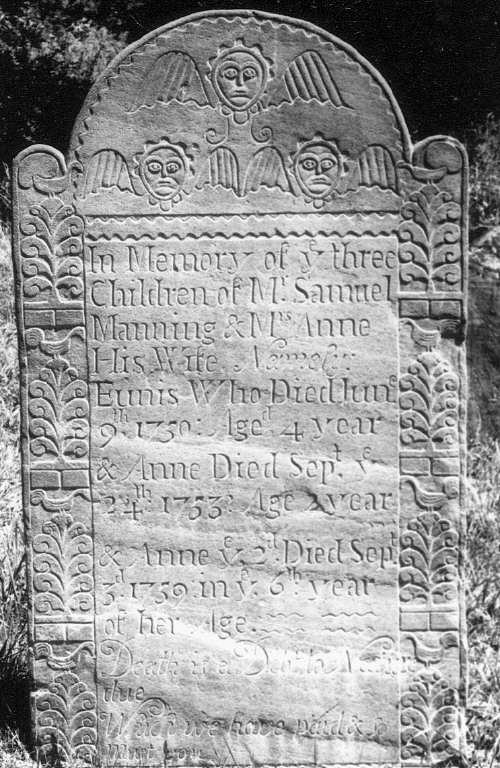 In Memory of yᵉ three
Children of Mʳ. Samuel
Manning & Mʳˢ Anne
His Wife Namely:
Eunis Who Died Junᵉ
9ᵗʰ 1750: Ageᵈ 4 year
& Anne Died Sepᵗ. yᵉ
24ᵗʰ 1753: Age 2 year
& Anne yᵉ 2ᵈ Died Sepᵗ
3ᵈ 1759. in yᵉ. 6ᵗʰ year
of her Age.
Death is a Debt to Nature
due
Which we have paid & so
Must you